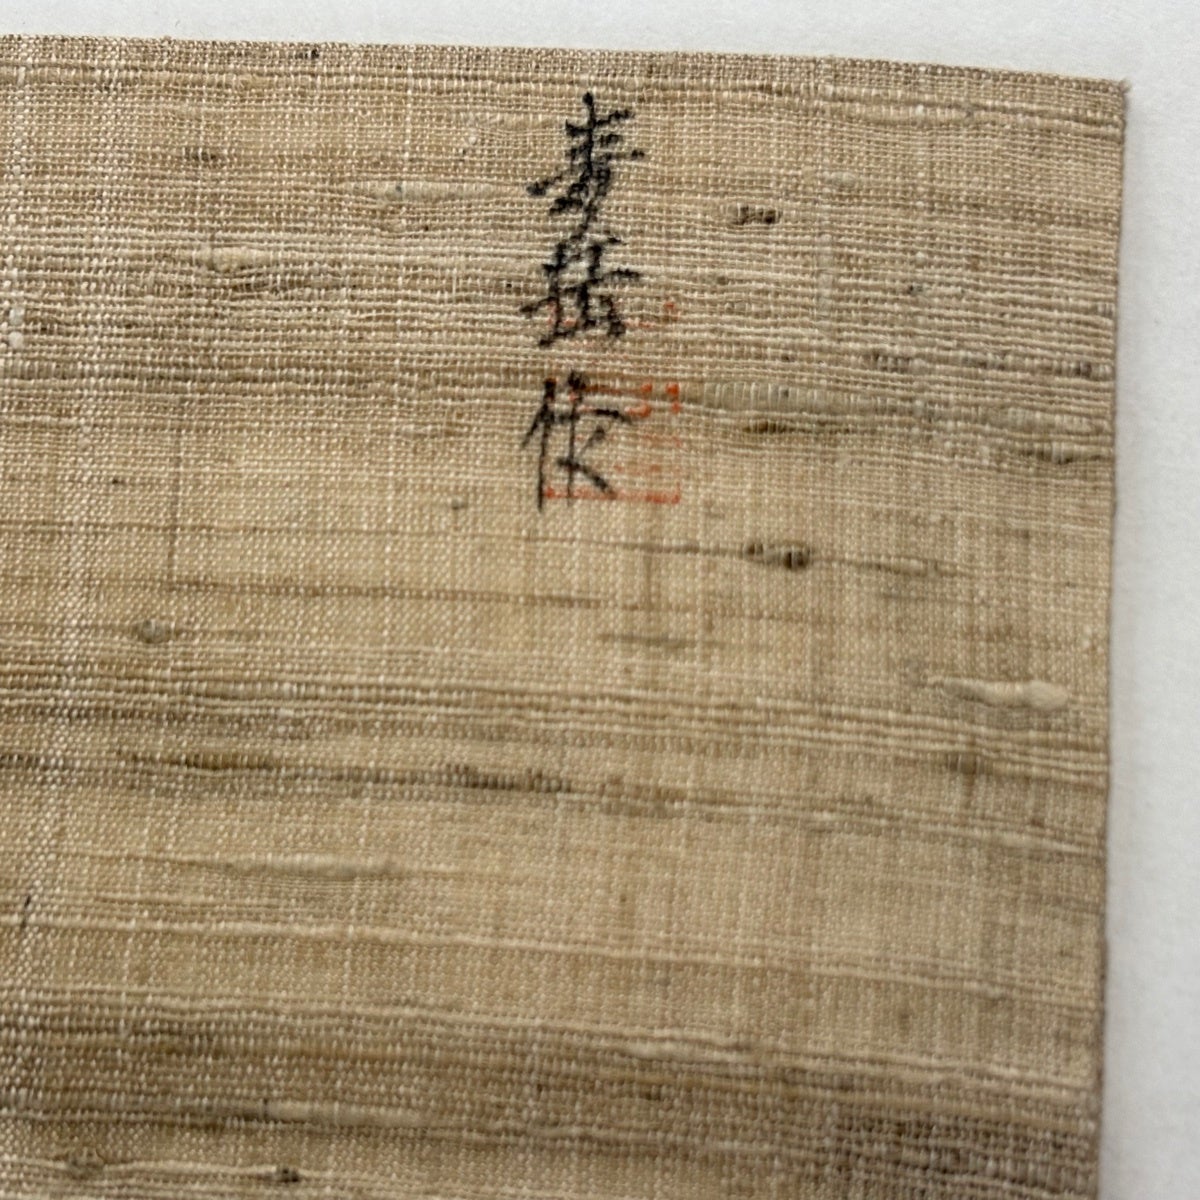 寿岳作